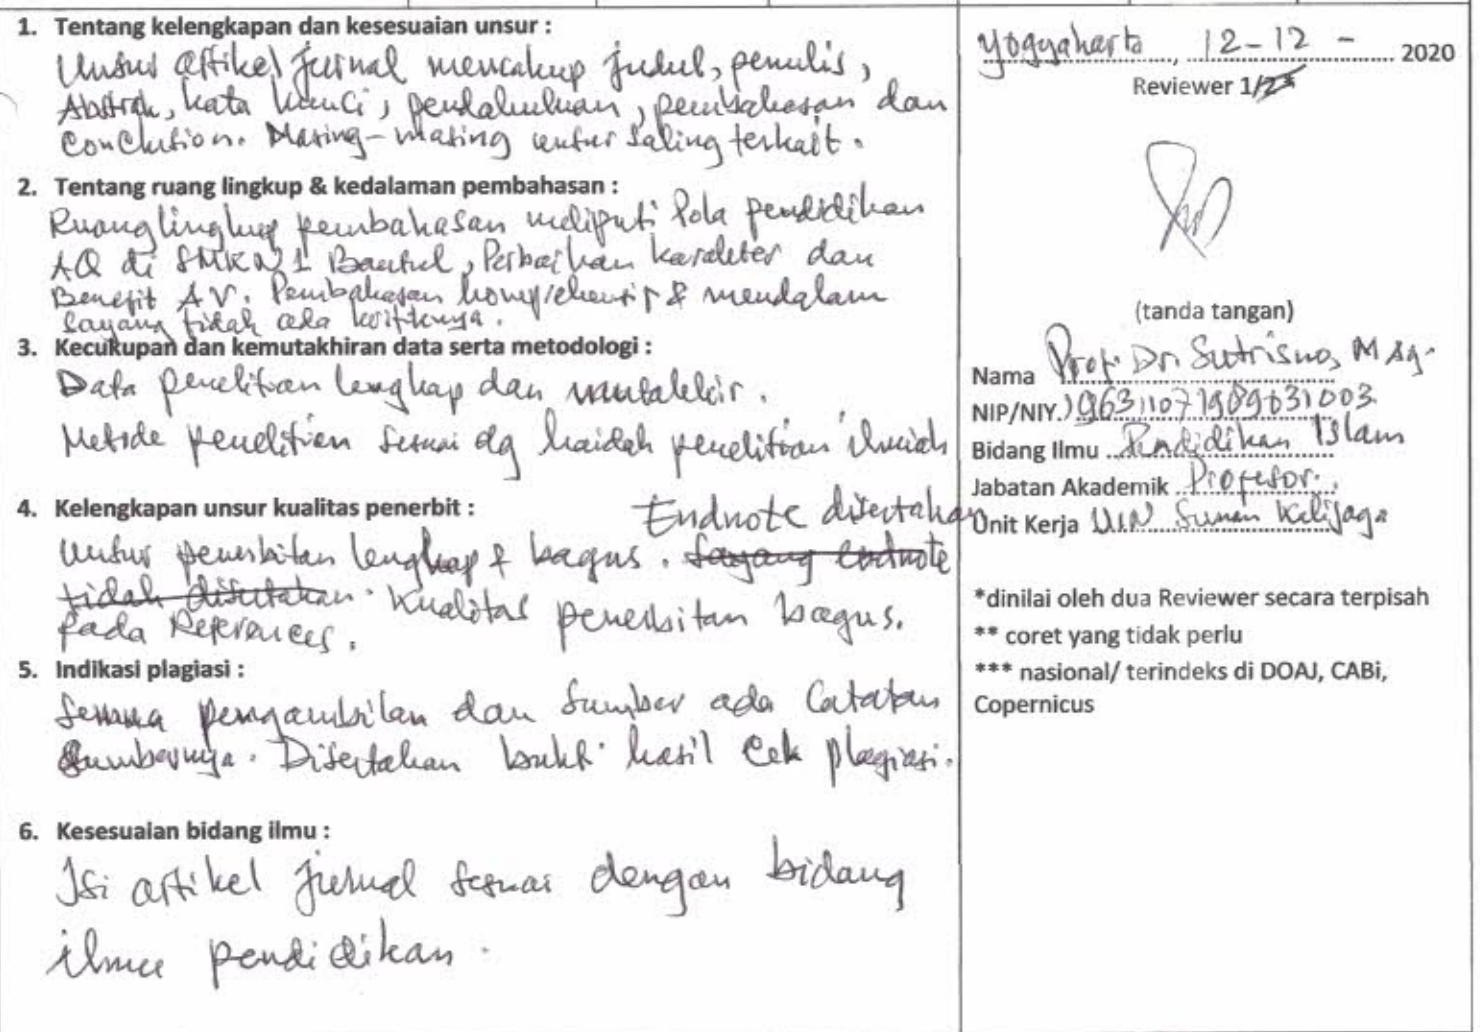 1. Tentang kelengkapan dan kesesuaian unsur :
Unsur artikel jurnal mencakup judul, penulis,
Abstrak, kata kunci, pendahuluan, pembahasan dan
Conclusion. Masing-masing unsur saling terkait.
2. Tentang ruang lingkup & kedalaman pembahasan :
Ruang lingkup pembahasan meliputi Pola pendidikan
AQ di SMKN 1 Bantul, Perbaikan karakter dan
Benefit AV. Pembahasan komprehensif & mendalam
Sayang tidak ada kritiknya.
3. Kecukupan dan kemutakhiran data serta metodologi :
Data penelitian lengkap dan mutakhir.
Metode penelitian sesuai dg kaidah penelitian ilmiah
4. Kelengkapan unsur kualitas penerbit :
Endnote disertakan
Unsur penerbitan lengkap & bagus. Sayang endnote
tidak disertakan. Kualitas penerbitan bagus.
pada References.
5. Indikasi plagiasi :
Semua pengambilan dan sumber ada Catatan
Sumbernya. Disertakan bukti hasil Cek plagiasi.
6. Kesesuaian bidang ilmu :
Isi artikel jurnal sesuai dengan bidang
ilmu pendidikan.
Yogyakarta, 12-12- 2020
Reviewer 1/2*
(tanda tangan)
Nama Prof. Dr. Sutrisno, M Ag.
NIP/NIY. 196311071989031003
Bidang Ilmu Pendidikan Islam
Jabatan Akademik Profesor.
Unit Kerja UIN Sunan Kalijaga
*dinilai oleh dua Reviewer secara terpisah
** coret yang tidak perlu
*** nasional/ terindeks di DOAJ, CABi,
Copernicus